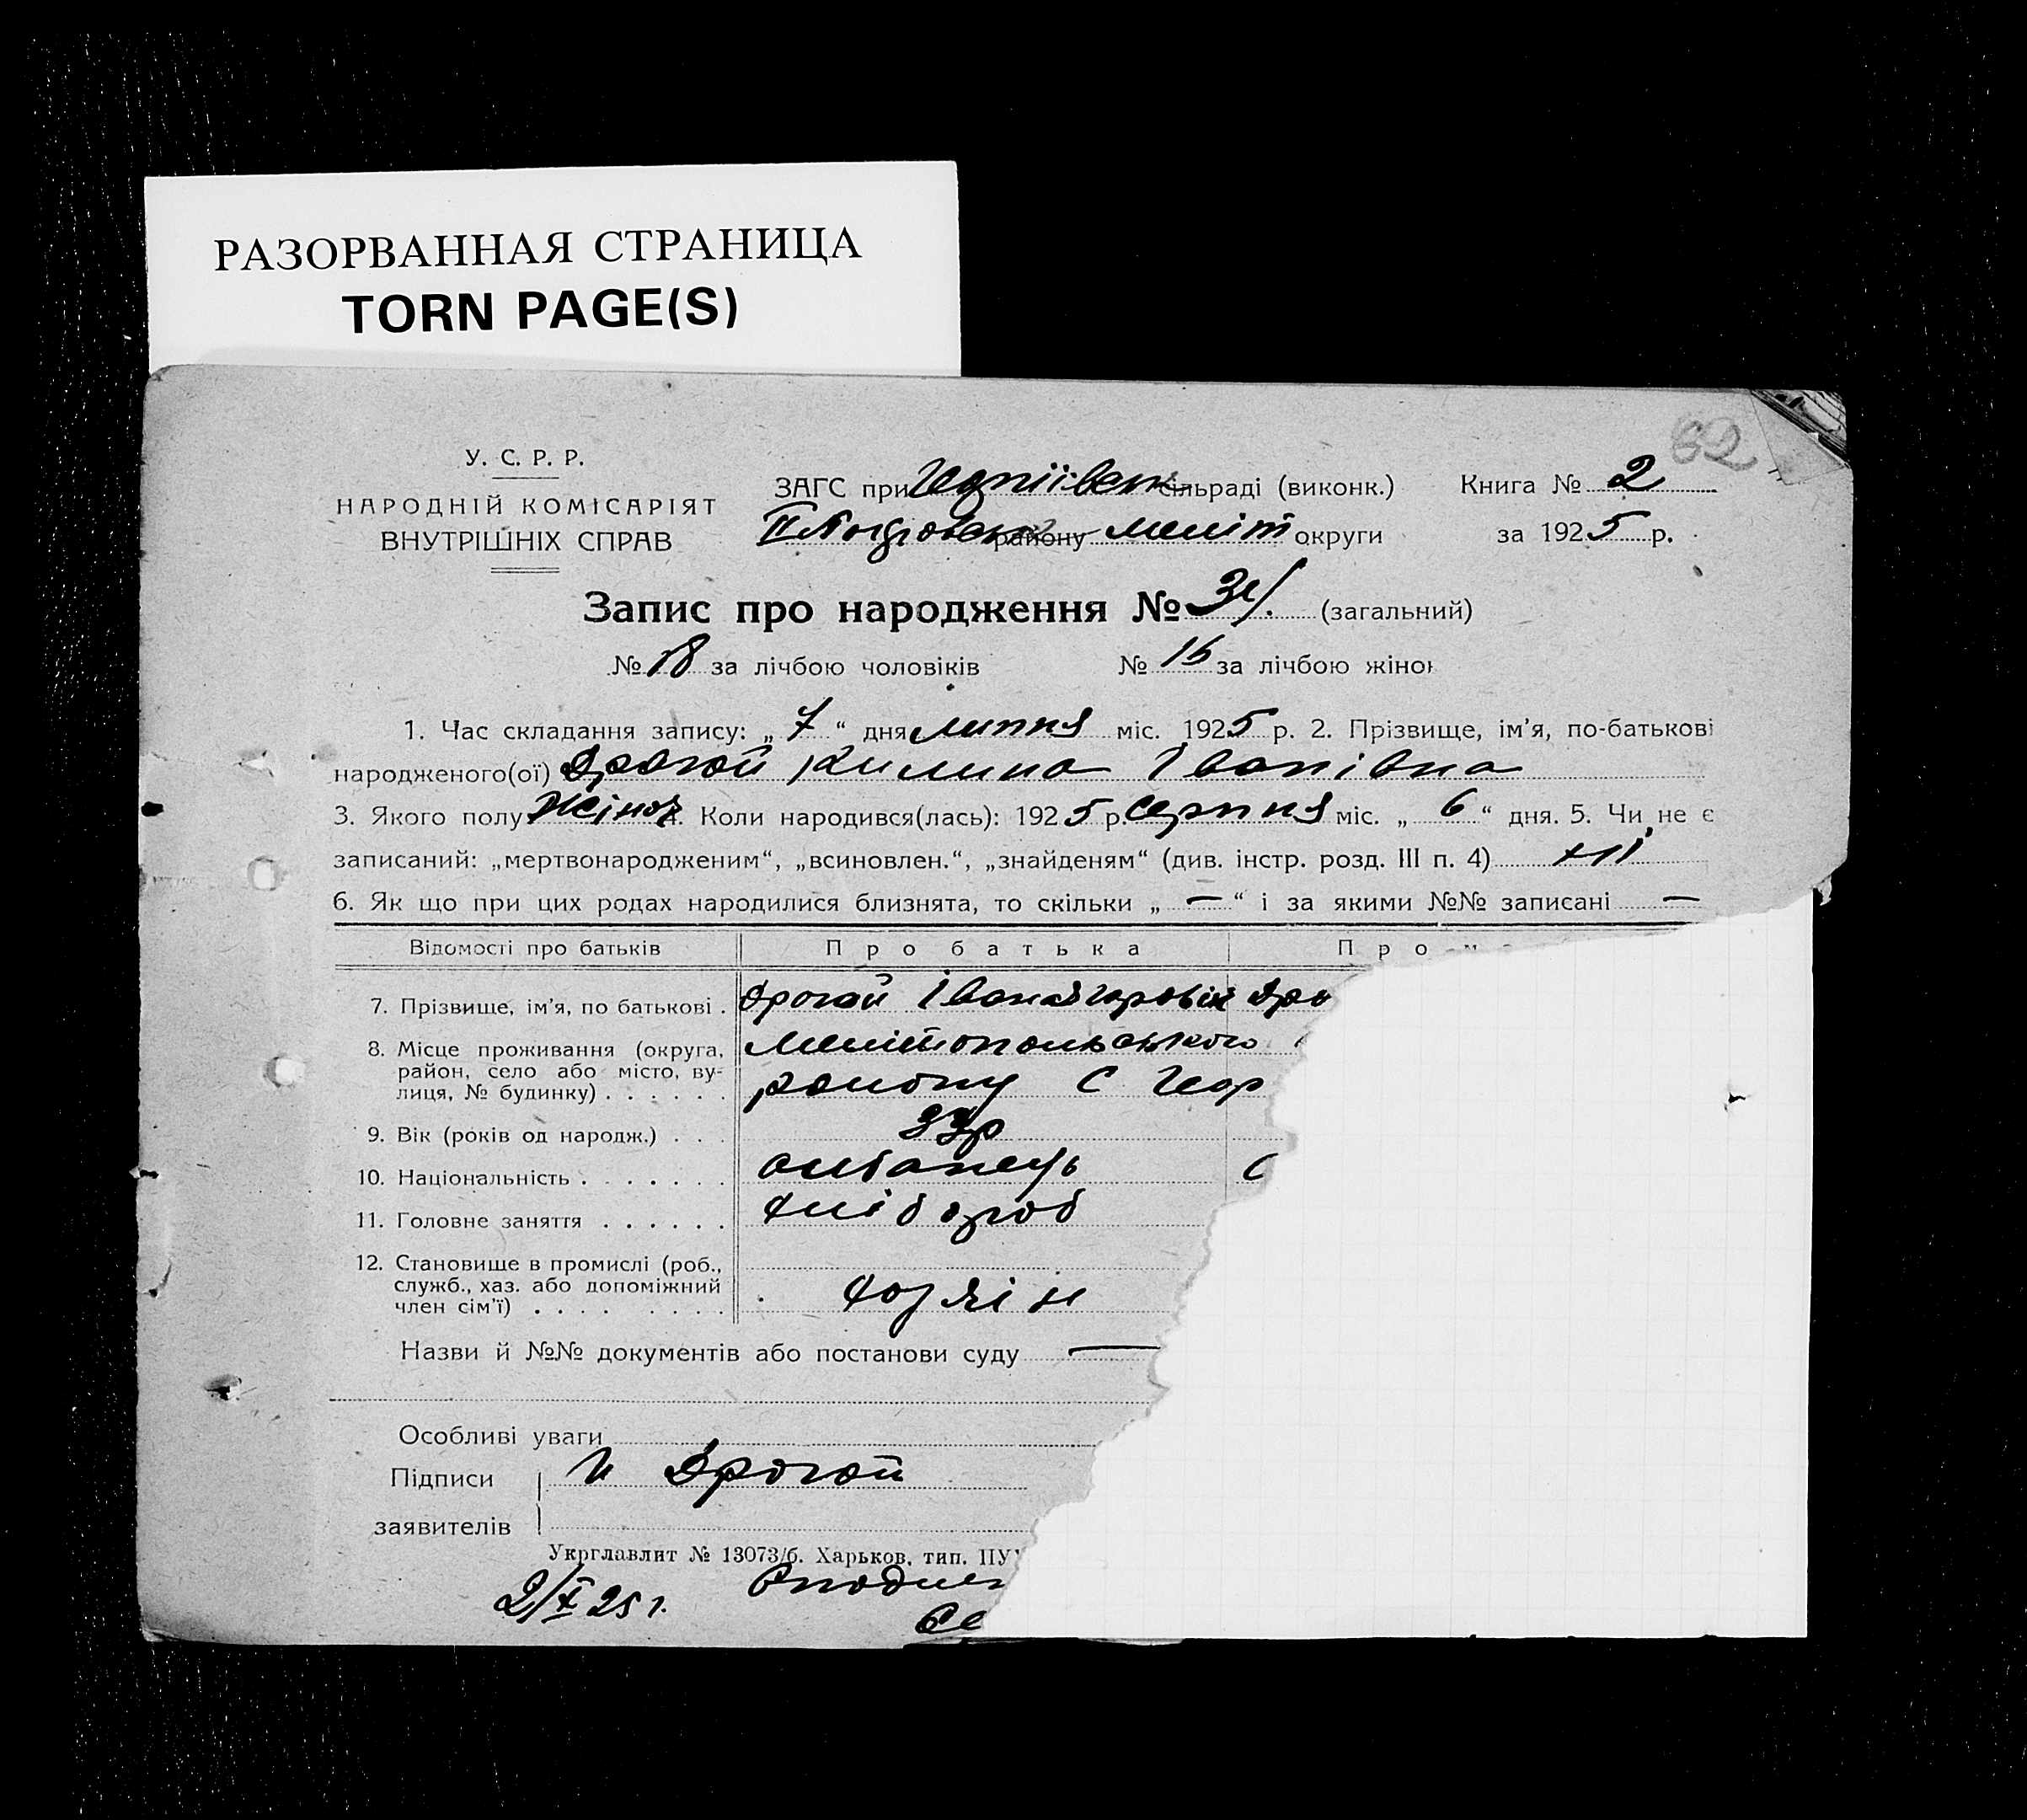 РАЗОРВАННАЯ СТРАНИЦА
TORN PAGE(S)
62
У. С. Р. Р.
НАРОДНІЙ КОМІСАРІЯТ
ВНУТРІШНІХ СПРАВ
ЗАГС при сільраді (виконк.)
району Меліт округи
Книга № 2
за 1925 р.
Запис про народження № 34. (загальний)
№ 18 за лічбою чоловіків № 16 за лічбою жінок
1. Час складання запису: „ 7 “ дня липня міс. 1925 р. 2. Прізвище, ім'я, по-батькові
народженого(ої) Драгой Килина Іванівна
3. Якого полу Жіноч 4. Коли народився(лась): 1925 р. серпня міс. „ 6 “ дня. 5. Чи не є
записаний: „мертвонародженим“, „всиновлен.“, „знайденям“ (див. інстр. розд. III п. 4) ні
6. Як що при цих родах народилися близнята, то скільки „ — “ і за якими №№ записані —
Відомості про батьків Про батька Про м
7. Прізвище, ім'я, по батькові . Дрогой Іван Дро
8. Місце проживання (округа, Мелітопольського
район, село або місто, ву-
лиця, № будинку) . . . . . . району С Геор
9. Вік (років од народж.) . . . 33р
10. Національність . . . . . . . албанець
11. Головне заняття . . . . . . хлібороб
12. Становище в промислі (роб.,
служб., хаз. або допоміжний
член сім'ї) . . . . . . . . хозяїн
Назви й №№ документів або постанови суду —
Особливі уваги
Підписи И Дрогой
заявителів
Укрглавлит № 13073/б. Харьков, тип. ПУ
2/X 25 г.